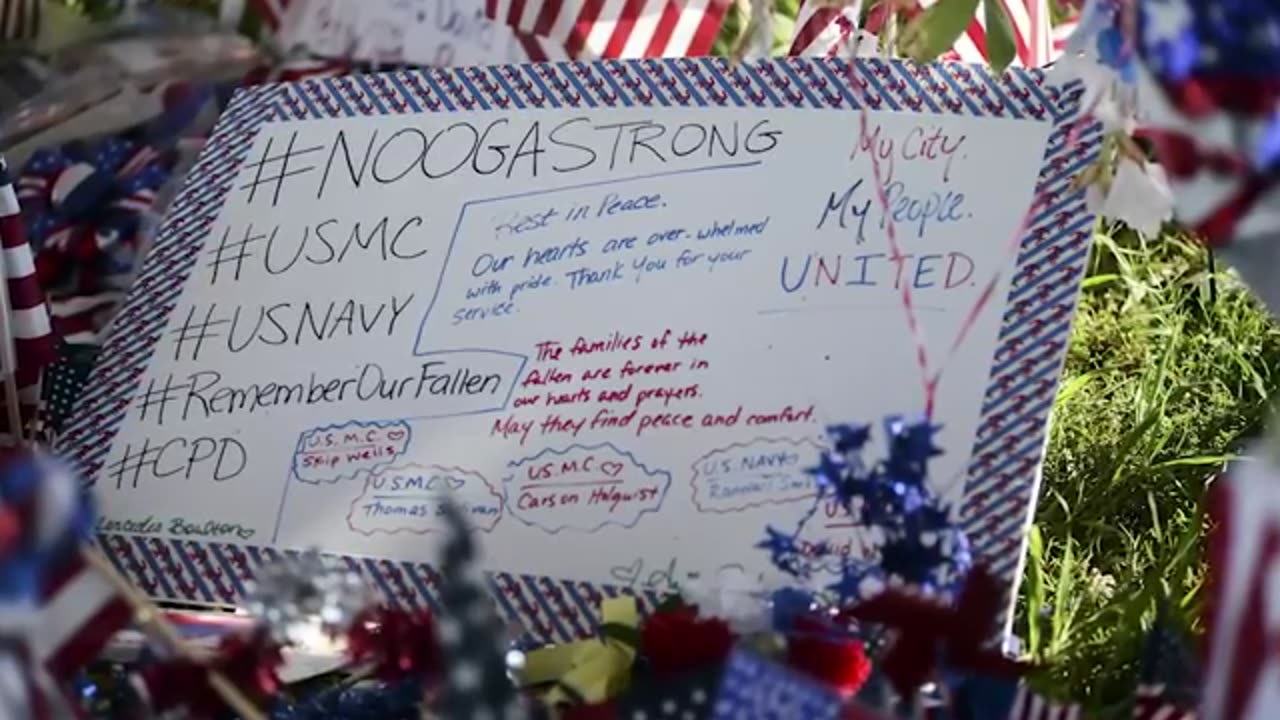 #NOOGASTRONG
#USMC
#USNAVY
#RememberOurFallen
#CPD
Rest in Peace.
Our hearts are over-whelmed
with pride. Thank You for your
service.
The families of the
fallen are forever in
our hearts and prayers.
May they find peace and comfort.
My City.
My People.
UNITED.
U.S.M.C.♡
Skip Wells
USMC♡
Thomas
US.M.C♡
Carson Holguist
U.S. NAVY♡
David